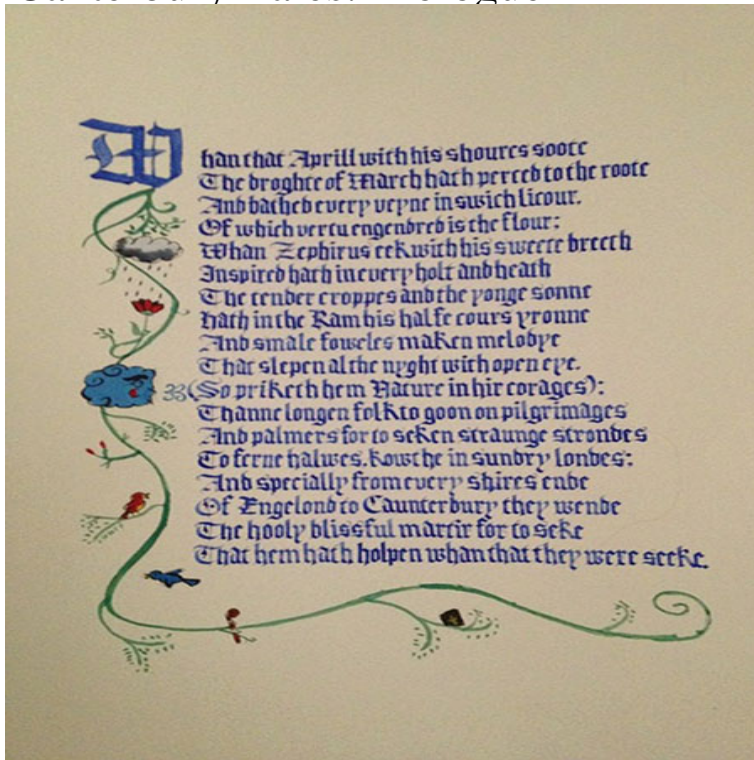 Whan that Aprill with his shoures soote
The droghte of March hath perced to the roote
And bathed every veyne in swich licour.
Of which vertu engendred is the flour:
Whan Zephirus eek with his sweete breeth
Inspired hath in every holt and heath
The tender croppes and the yonge sonne
Hath in the Ram his halfe cours yronne
And smale foweles maken melodye
That slepen al the nyght with open eye.
(So priketh hem Nature in hir corages):
Thanne longen folk to goon on pilgrimages
And palmers for to seken straunge strondes
To ferne halwes, kowthe in sundry londes:
And specially from every shires ende
Of Engelond to Caunterbury they wende
The hooly blissful martir for to seke
That hem hath holpen whan that they were seeke.